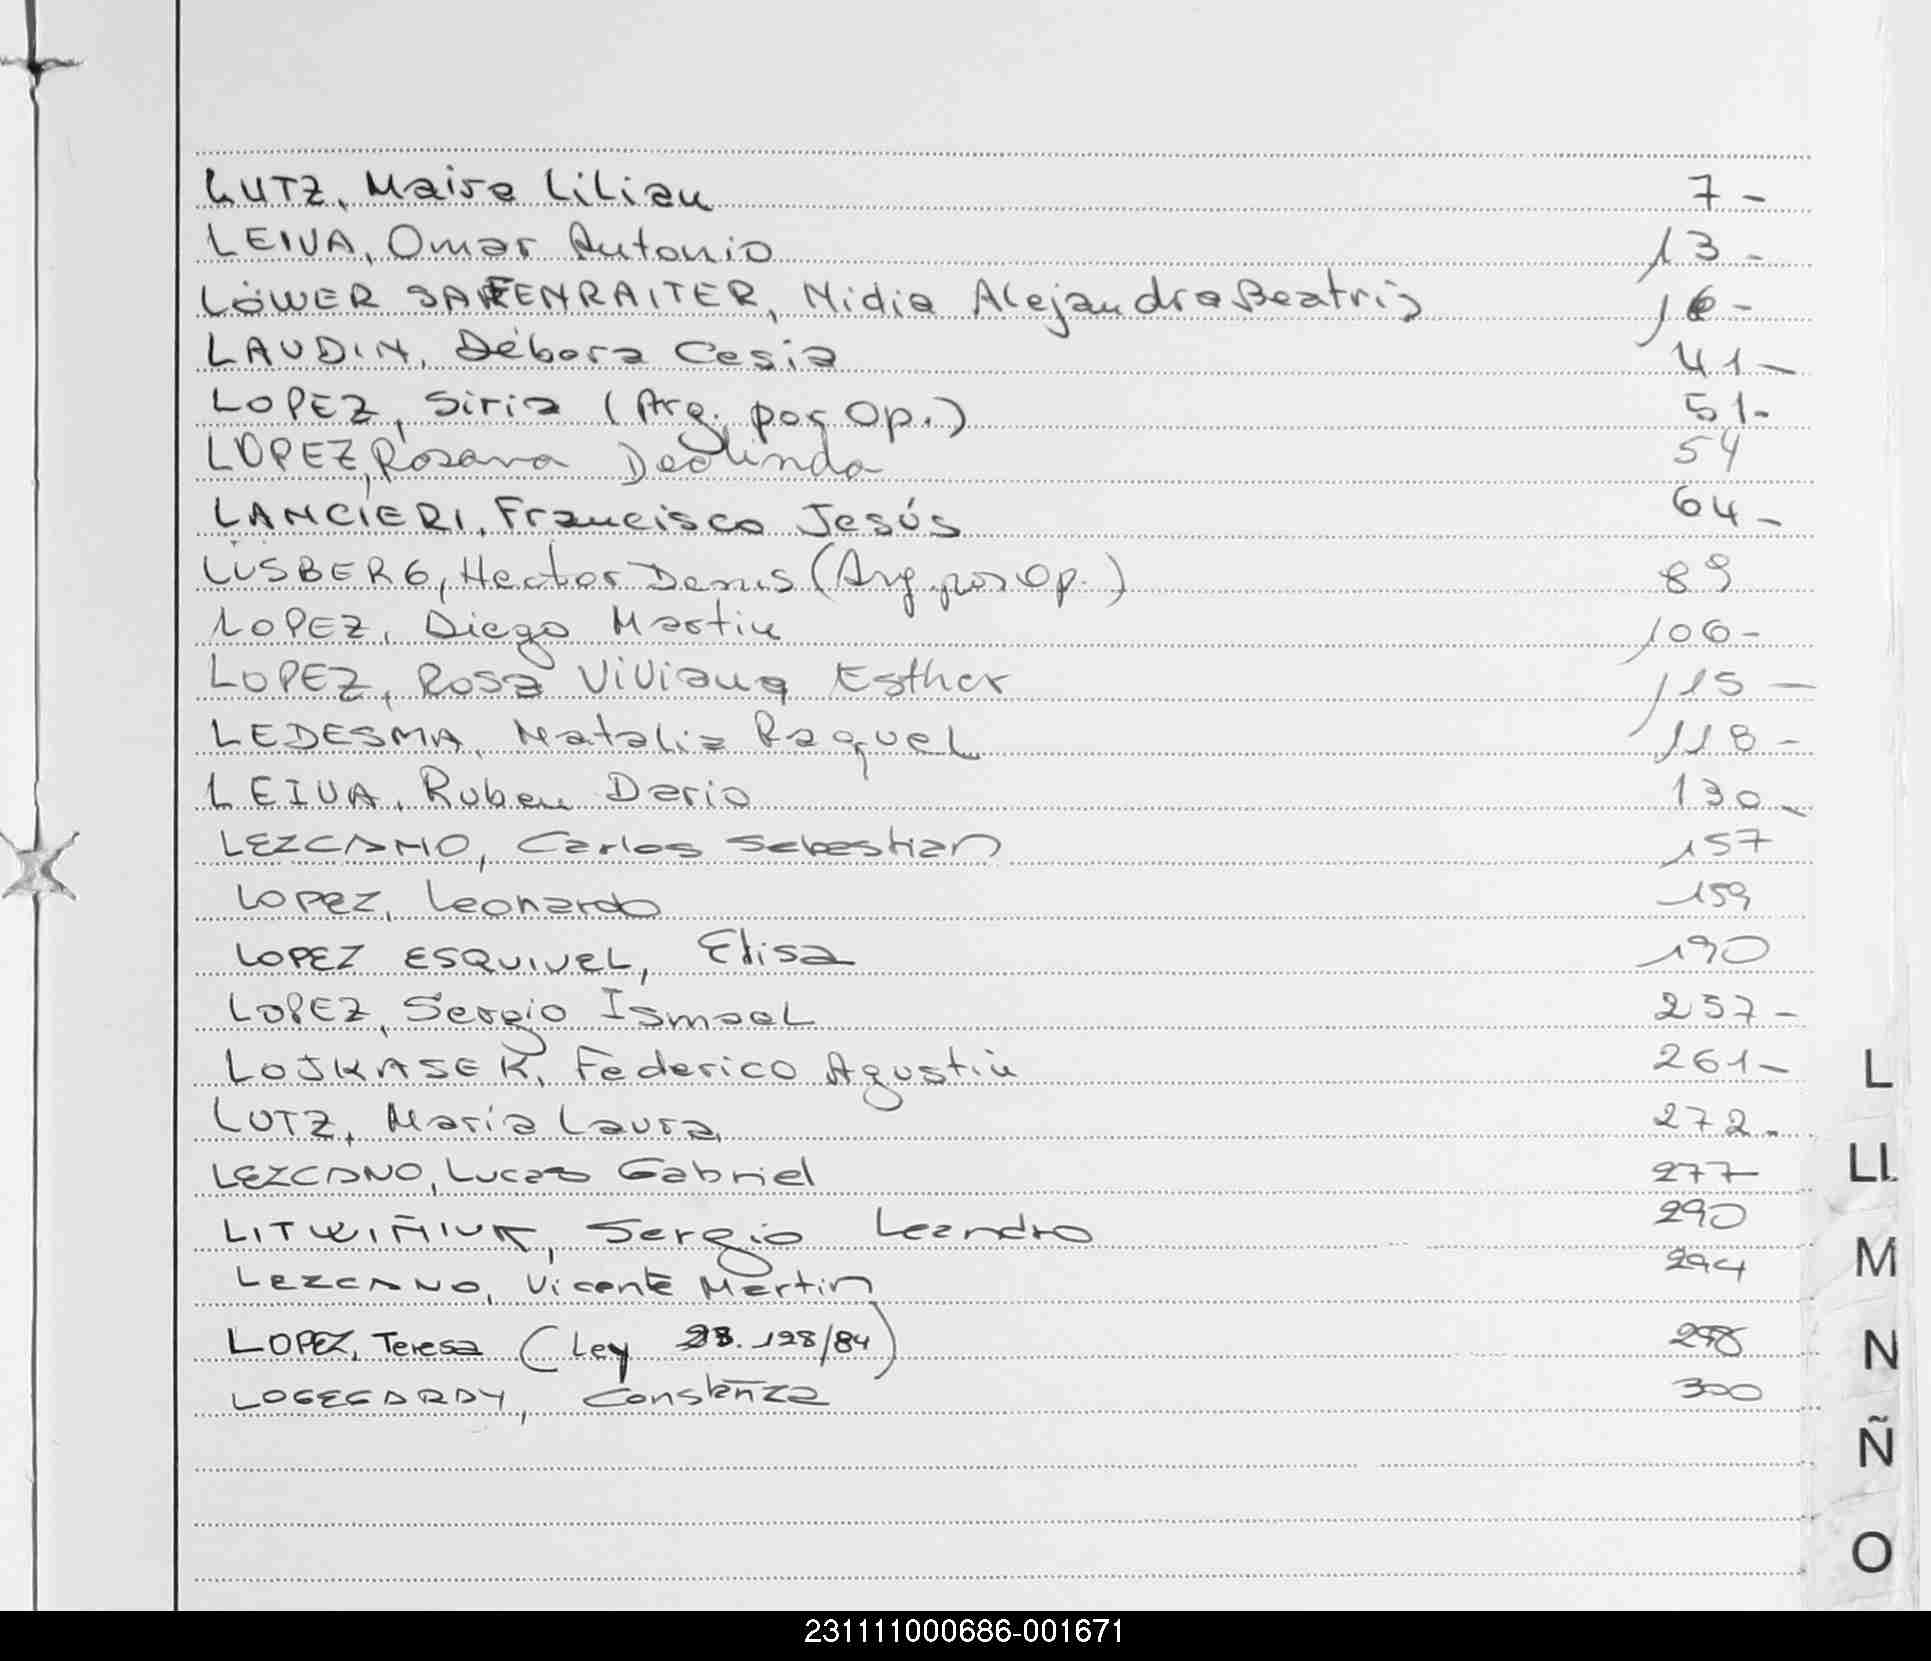 LUTZ, Maira Lilian 7 -
LEIVA, Omar Antonio 13 -
LÖWER SAFENRAITER, Nidia Alejandra Beatriz 16 -
LAUDIN, Débora Cesia 41 -
LOPEZ, Siria (Arg. por Op.) 51 -
LOPEZ, Rosana Deolinda 54
LANCIERI, Francisco Jesús 64 -
LÜSBERG, Hector Denis (Arg. por Op.) 89
LOPEZ, Diego Martin 106 -
LOPEZ, Rosa Viviana Esther 115 -
LEDESMA, Natalia Raquel 118 -
LEIVA, Ruben Dario 130 -
LEZCANO, Carlos Sebastian 157
LOPEZ, Leonardo 159
LOPEZ ESQUIVEL, Elisa 190
LOPEZ, Sergio Ismael 257 -
LOJKASEK, Federico Agustin 261 -
LUTZ, María Laura 272 -
LEZCANO, Lucas Gabriel 277
LITWIÑIUK, Sergio Leandro 290
LEZCANO, Vicente Martin 294
LOPEZ, Teresa (Ley 23.128/84) 298
LOGEGARAY, Constanza 300
L
LL
M
N
Ñ
O
231111000686-001671